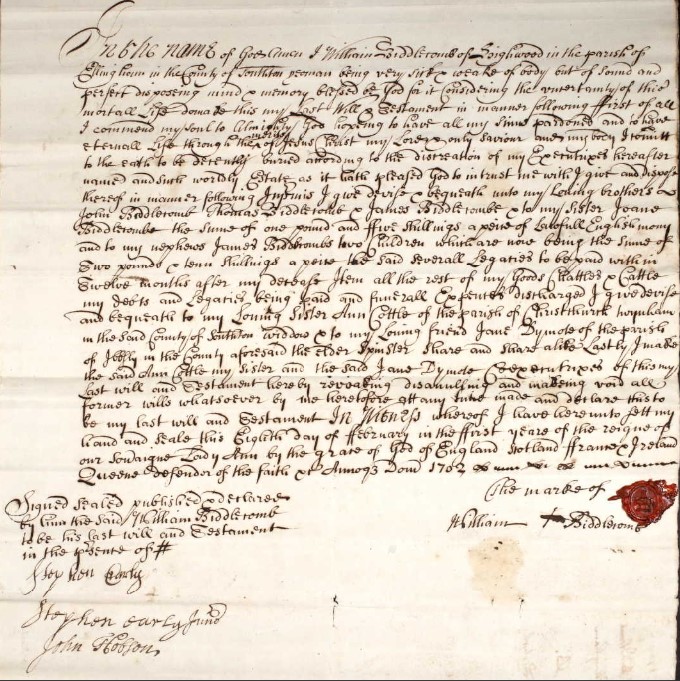 In the name of God Amen I William Biddlecomb of in the parish of
Ellingham in the County of Southton yeoman being very sick & weake of body but of sound and
perfect disposeing mind & memory blessed be God for it Considering the uncertainty of this
mortall Life doe make this my Last Will & Testament in manner following ffirst of all
I commend my soul to Almighty God hopeing to have all my sinns pardoned and to have
eternall Life through the merritts of Jesus Christ my Lord & only saviour and my body I comitt
to the earth to be decently buried according to the discreation of my Executrixes hereafter
named and such worldly Estate as it hath pleased God to intrust me with I give and dispose
thereof in manner following I give devise & bequeath unto my Loving brothers
John Biddlecombe Thomas Biddlecombe & James Biddlecombe & to my Sister Joane
Biddlecombe the sume of one pound and ffive shillings a peice of Lawfull English mony
and to my nephews James Biddlecombs two Children which are now being the sume of
Two pounds & tenn shillings a peice the said severall Legacies to be paid with in
Twelve months after my decease Item all the rest of my Goods Chattles & Cattle
my debts and Legacies being paid and funerall Expences discharged I give devise
and bequeath to my Loving Sister Ann Cottle of the parish of Christchurch
in the said County of Southton widdow & to my Loving friend Jane Dymote of the parish
of in the County aforesaid the elder Spinster share and share alike Lastly I make
the said Ann Cottle my Sister and the said Jane Dymote Executrixes of this my
Last will and Testament hereby revoaking disanulling and makeing void all
former wills whatsoever by me heretofore att any time made and declare this to
be my last will and Testament In Witness whereof I have hereunto sett my
hand and seale this Eighth day of ffebruary in the ffirst yeare of the reigne of
our Soveraigne Lady Ann by the grace of God of England Scotland ffrance & Ireland
Queene defender of the faith &c Annoq Dom 1702
Signed sealed published & declared
by him the said William Biddlecomb
to be his last will and Testament
in the psence of
Stephen Early
Stephen early Jund
John Hobson
The marke of
William Biddlecomb